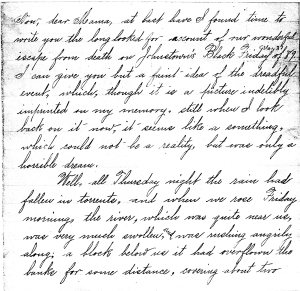 Now, dear Mama, at last have I found time to
write you the long looked for account of our wonderful
escape from death on Johnstown's Black Friday, May 31st 89.
I can give you but a faint idea of the dreadful
event, which, though it is a picture indelibly
imprinted on my memory, still when I look
back on it now, it seems like a something,
which could not be a reality, but was only a
horrible dream.
Well, all Thursday night the rain had
fallen in torrents, and when we rose Friday
morning, the river, which was quite near us,
was very much swollen, & was rushing angrily
along; a block below us it had overflown the
banks for some distance, covering about two